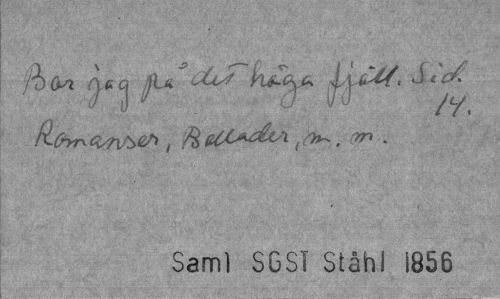 Bor jag på det höga fjäll. Sid.
14.
Romanser, Ballader, m. m.
Saml SGST Ståhl 1856